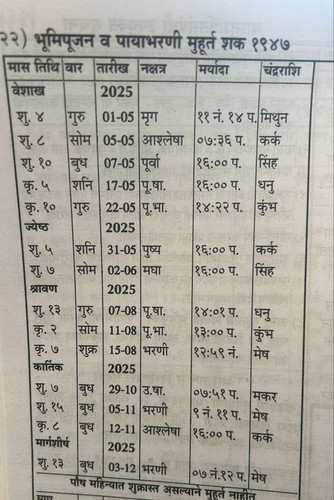 २२) भूमिपूजन व पायाभरणी मुहूर्त शक १९४७
मास तिथि वार तारीख नक्षत्र मर्यादा चंद्रराशि
वैशाख 2025
शु. ४ गुरु 01-05 मृग ११ नं. १४ प. मिथुन
शु. ८ सोम 05-05 आश्लेषा ०७:३६ प. कर्क
शु. १० बुध 07-05 पूर्वा १६:०० प. सिंह
कृ. ५ शनि 17-05 पू.षा. १६:०० प. धनु
कृ. १० गुरु 22-05 पू.भा. १४:२२ प. कुंभ
ज्येष्ठ 2025
शु. ५ शनि 31-05 पुष्य १६:०० प. कर्क
शु. ७ सोम 02-06 मघा १६:०० प. सिंह
श्रावण 2025
शु. १३ गुरु 07-08 पू.षा. १४:०१ प. धनु
कृ. २ सोम 11-08 पू.भा. १३:०० प. कुंभ
कृ. ७ शुक्र 15-08 भरणी १२:५९ नं. मेष
कार्तिक 2025
शु. ७ बुध 29-10 उ.षा. ०७:५१ प. मकर
शु. १५ बुध 05-11 भरणी ९ नं. ११ प. मेष
कृ. ८ बुध 12-11 आश्लेषा १६:०० प. कर्क
मार्गशीर्ष 2025
शु. १३ बुध 03-12 भरणी ०७ नं.१२ प. मेष
पौष महिन्यात शुक्रास्त असल्याने मुहूर्त नाहीत
माघ